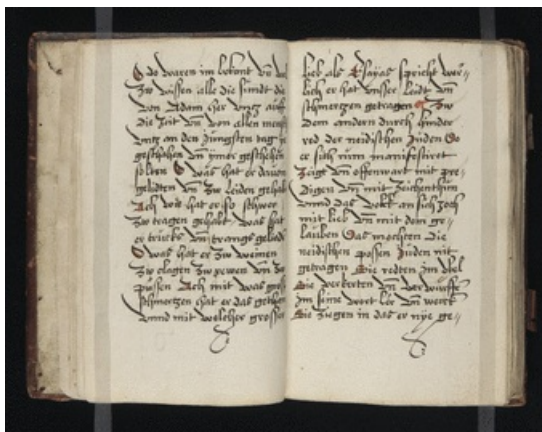 do waren im bekant vn̄
Zw wissen alle die sundt die
von Adam her vntz auff
die Zeit vn̄ von allen mensch
vntz an den Jungsten tag
geschehen vn̄ ymer geschehen
solten O was hat er davon
gelidten vn̄ Zw leiden gehab
Ach wie hat er so schwer
Zw tragen gehabt was hat
er trucks vn̄ trangs gehabt
O was hat er Zw weinen
Zw clagen Zw pewen vn̄ Zw
pussen Ach mit was gros
schmertzen hat er das gethan
vnnd mit welcher grossen
lieb als Esayas spricht wer„
lich er hat vnser leidt vn̄
schmertzen getragen Zw
dem andern durch hinder
red der neidischen Juden Do
er sich nun manifestiret
Zeigt vn̄ offenwart mit pre„
digen vn̄ mit Zeichenthun
vnnd das volk an sich Zoch
mit lieb vn̄ mit dem ge„
lauben Das mochten die
neidischen possen Juden nit
getragen Sie redten Im vbel
Sie verkerten vn̄ verwurffen
Im seine wort ler vn̄ werck
Sie Ziegen in das er nye ge„